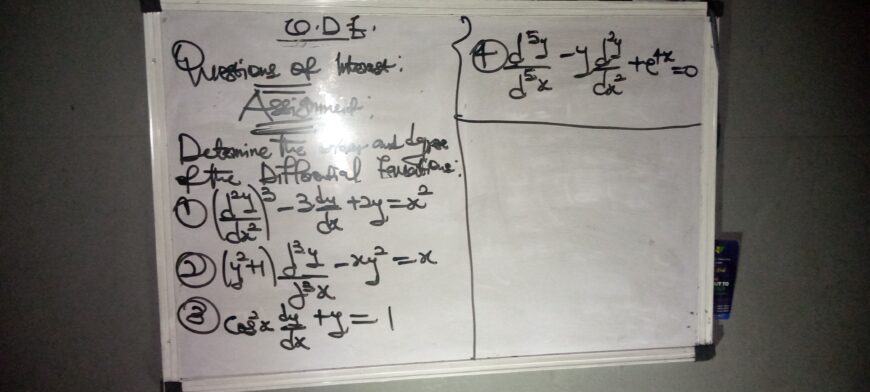 O.D.E.
Questions of Interest:
Assignment:
Determine the order and degree
of the Differential Equations:
① (d²y/dx²)³ - 3 dy/dx + 2y = x²
② (y²+1) d³y/d³x - xy² = x
③ cos²x dy/dx + y = 1
④ d⁵y/d⁵x - y d²y/dx² + e⁴ˣ = 0